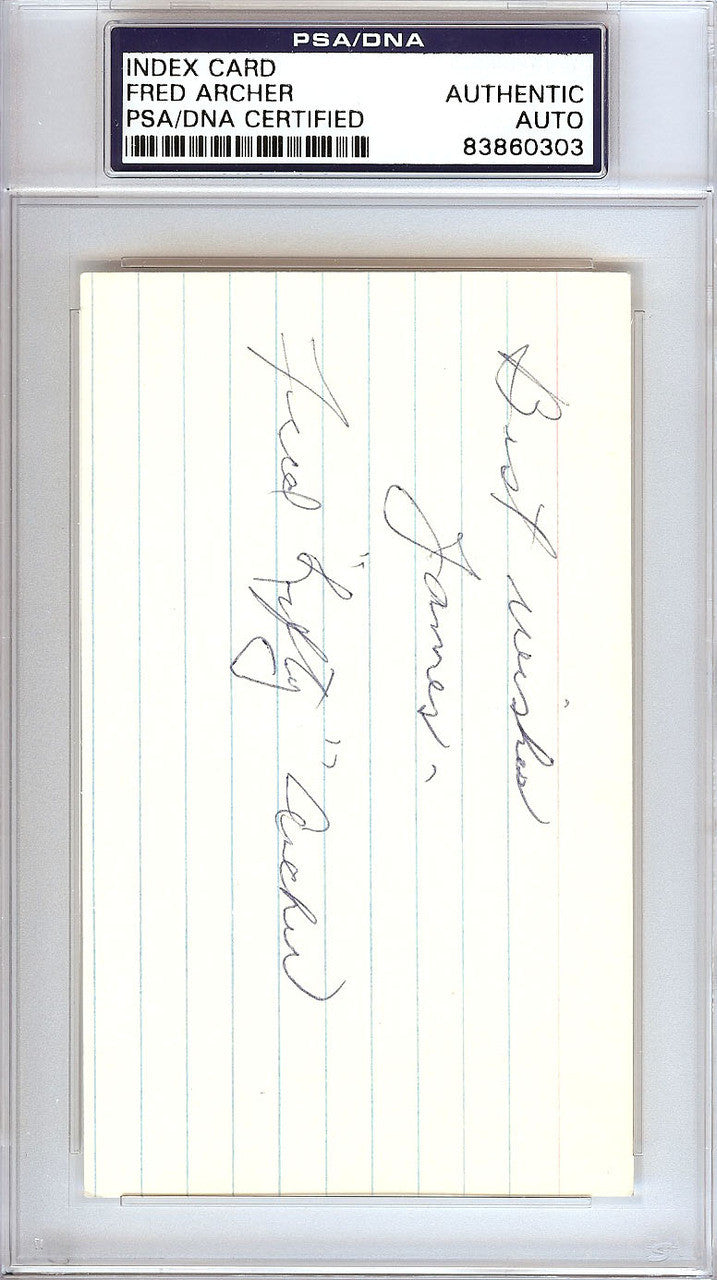 PSA/DNA
INDEX CARD
FRED ARCHER
AUTHENTIC
PSA/DNA CERTIFIED
AUTO
83860303
Best wishes
James -
Fred "Lefty" Archer